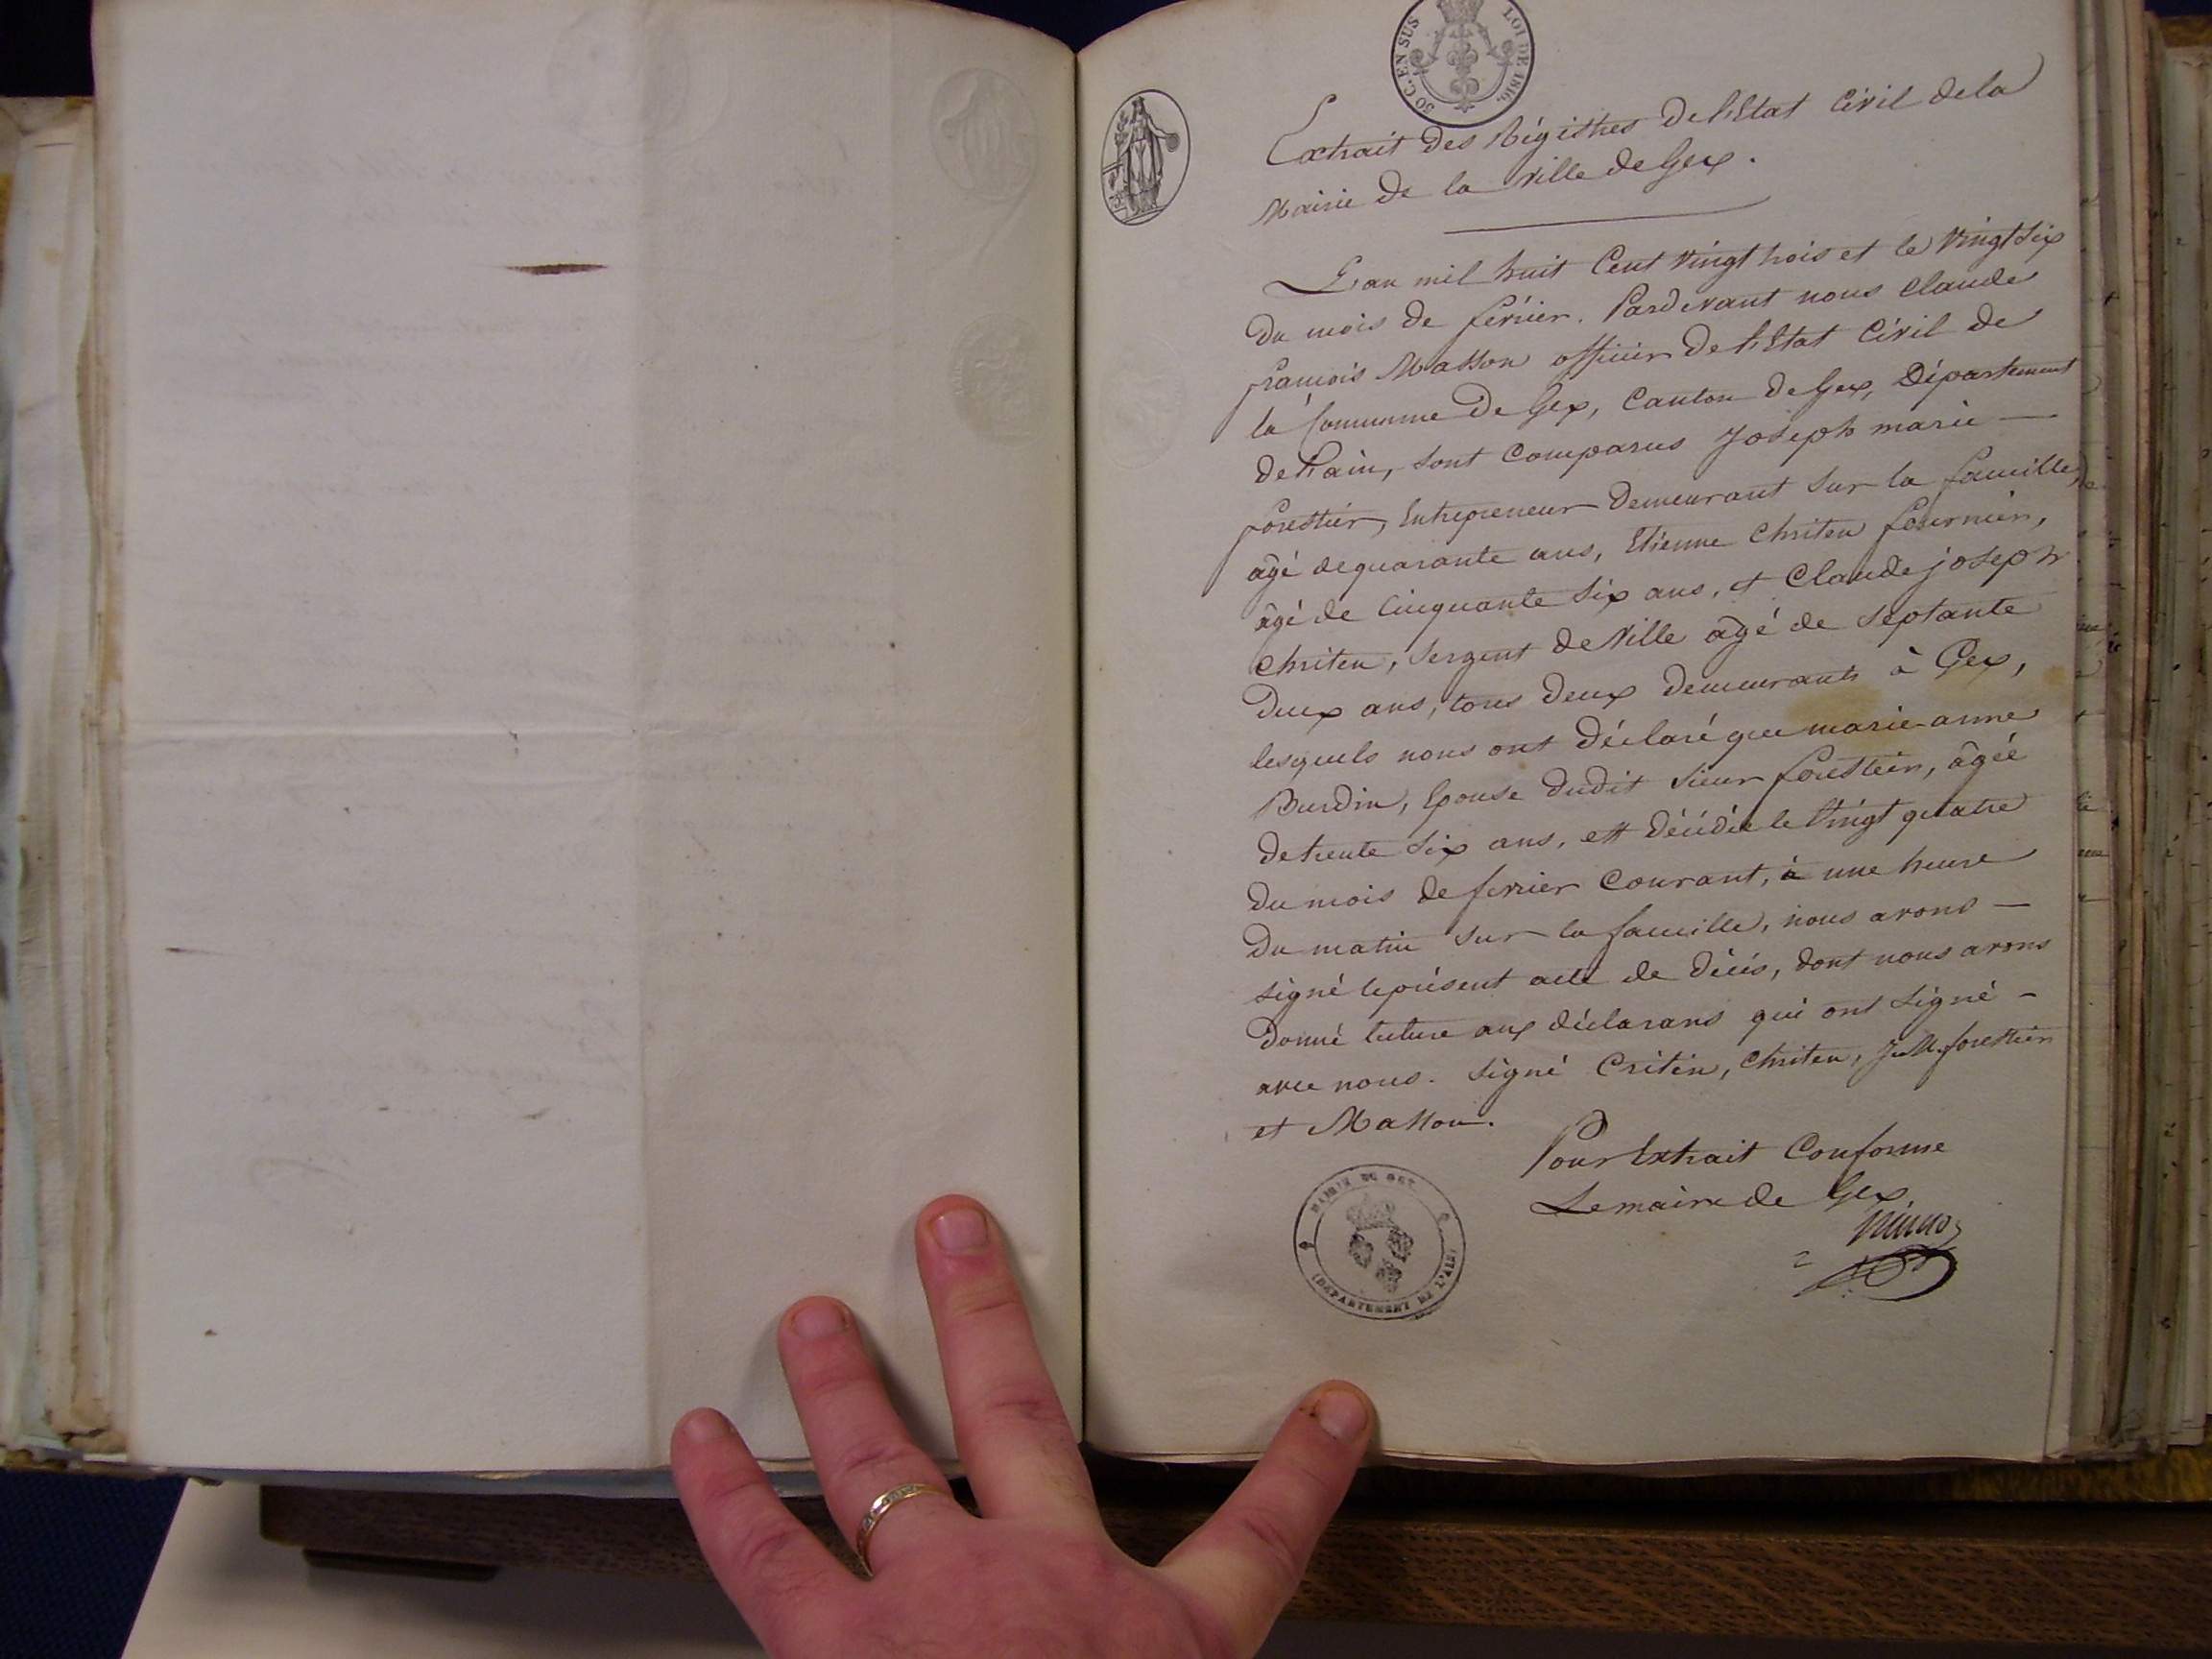 50 C. EN SUS
LOI DE 1816.
Extrait des Régistres De l'Etat Civil de la
Mairie de la Ville de Gex.
L'an mil huit Cent Vingt trois et le Vingt six
Du mois de février. Pardevant nous Claude
françois Masson officier De l'Etat Civil de
la Commune De Gex, Canton de Gex, Département
de l'ain, sont Comparus Joseph marie —
forestier, Entrepreneur Demeurant Sur la faucille,
agé de quarante ans, Etienne Chriten fournier,
agé de Cinquante Six ans, et Claude joseph
Chriten, Sergent de Ville agé de Septante
Deux ans, tous Deux Demeurants à Gex,
lesquels nous ont Déclaré que marie anne
Burdin, Epouse dudit Sieur forestier, âgée
de trente Six ans, est Décédée le Vingt quatre
du mois de fevrier Courant, à une heure
Du matin Sur la faucille, nous avons —
signé le présent acte de Décès, dont nous avons
Donné lecture aux déclarans qui ont Signé —
avec nous. Signé Critin, Chriten, J. M. forestier
et Masson.
Pour Extrait Conforme
Le maire de Gex,
MAIRIE DE GEX
(DÉPARTEMENT DE L'AIN)